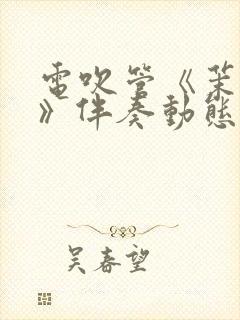 電吹管《茉
》伴奏動態
吴春望